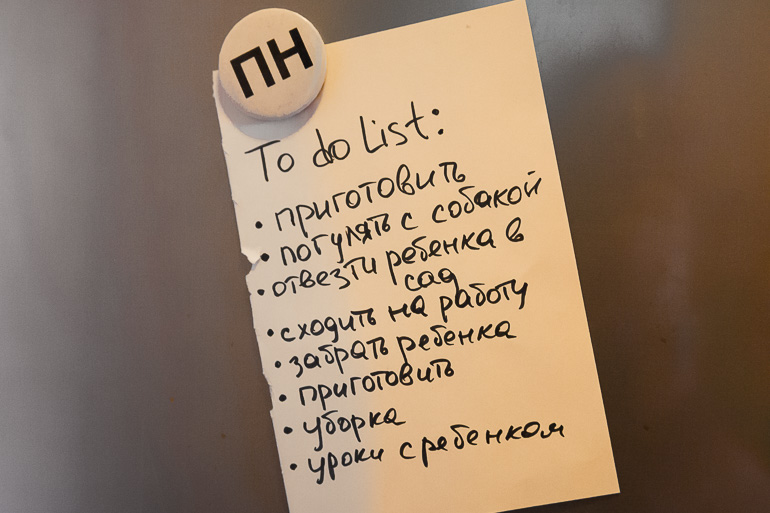 ПН
To do List:
• приготовить
• погулять с собакой
• отвезти ребенка в
сад
• сходить на работу
• забрать ребенка
• приготовить
• уборка
• уроки с ребенком